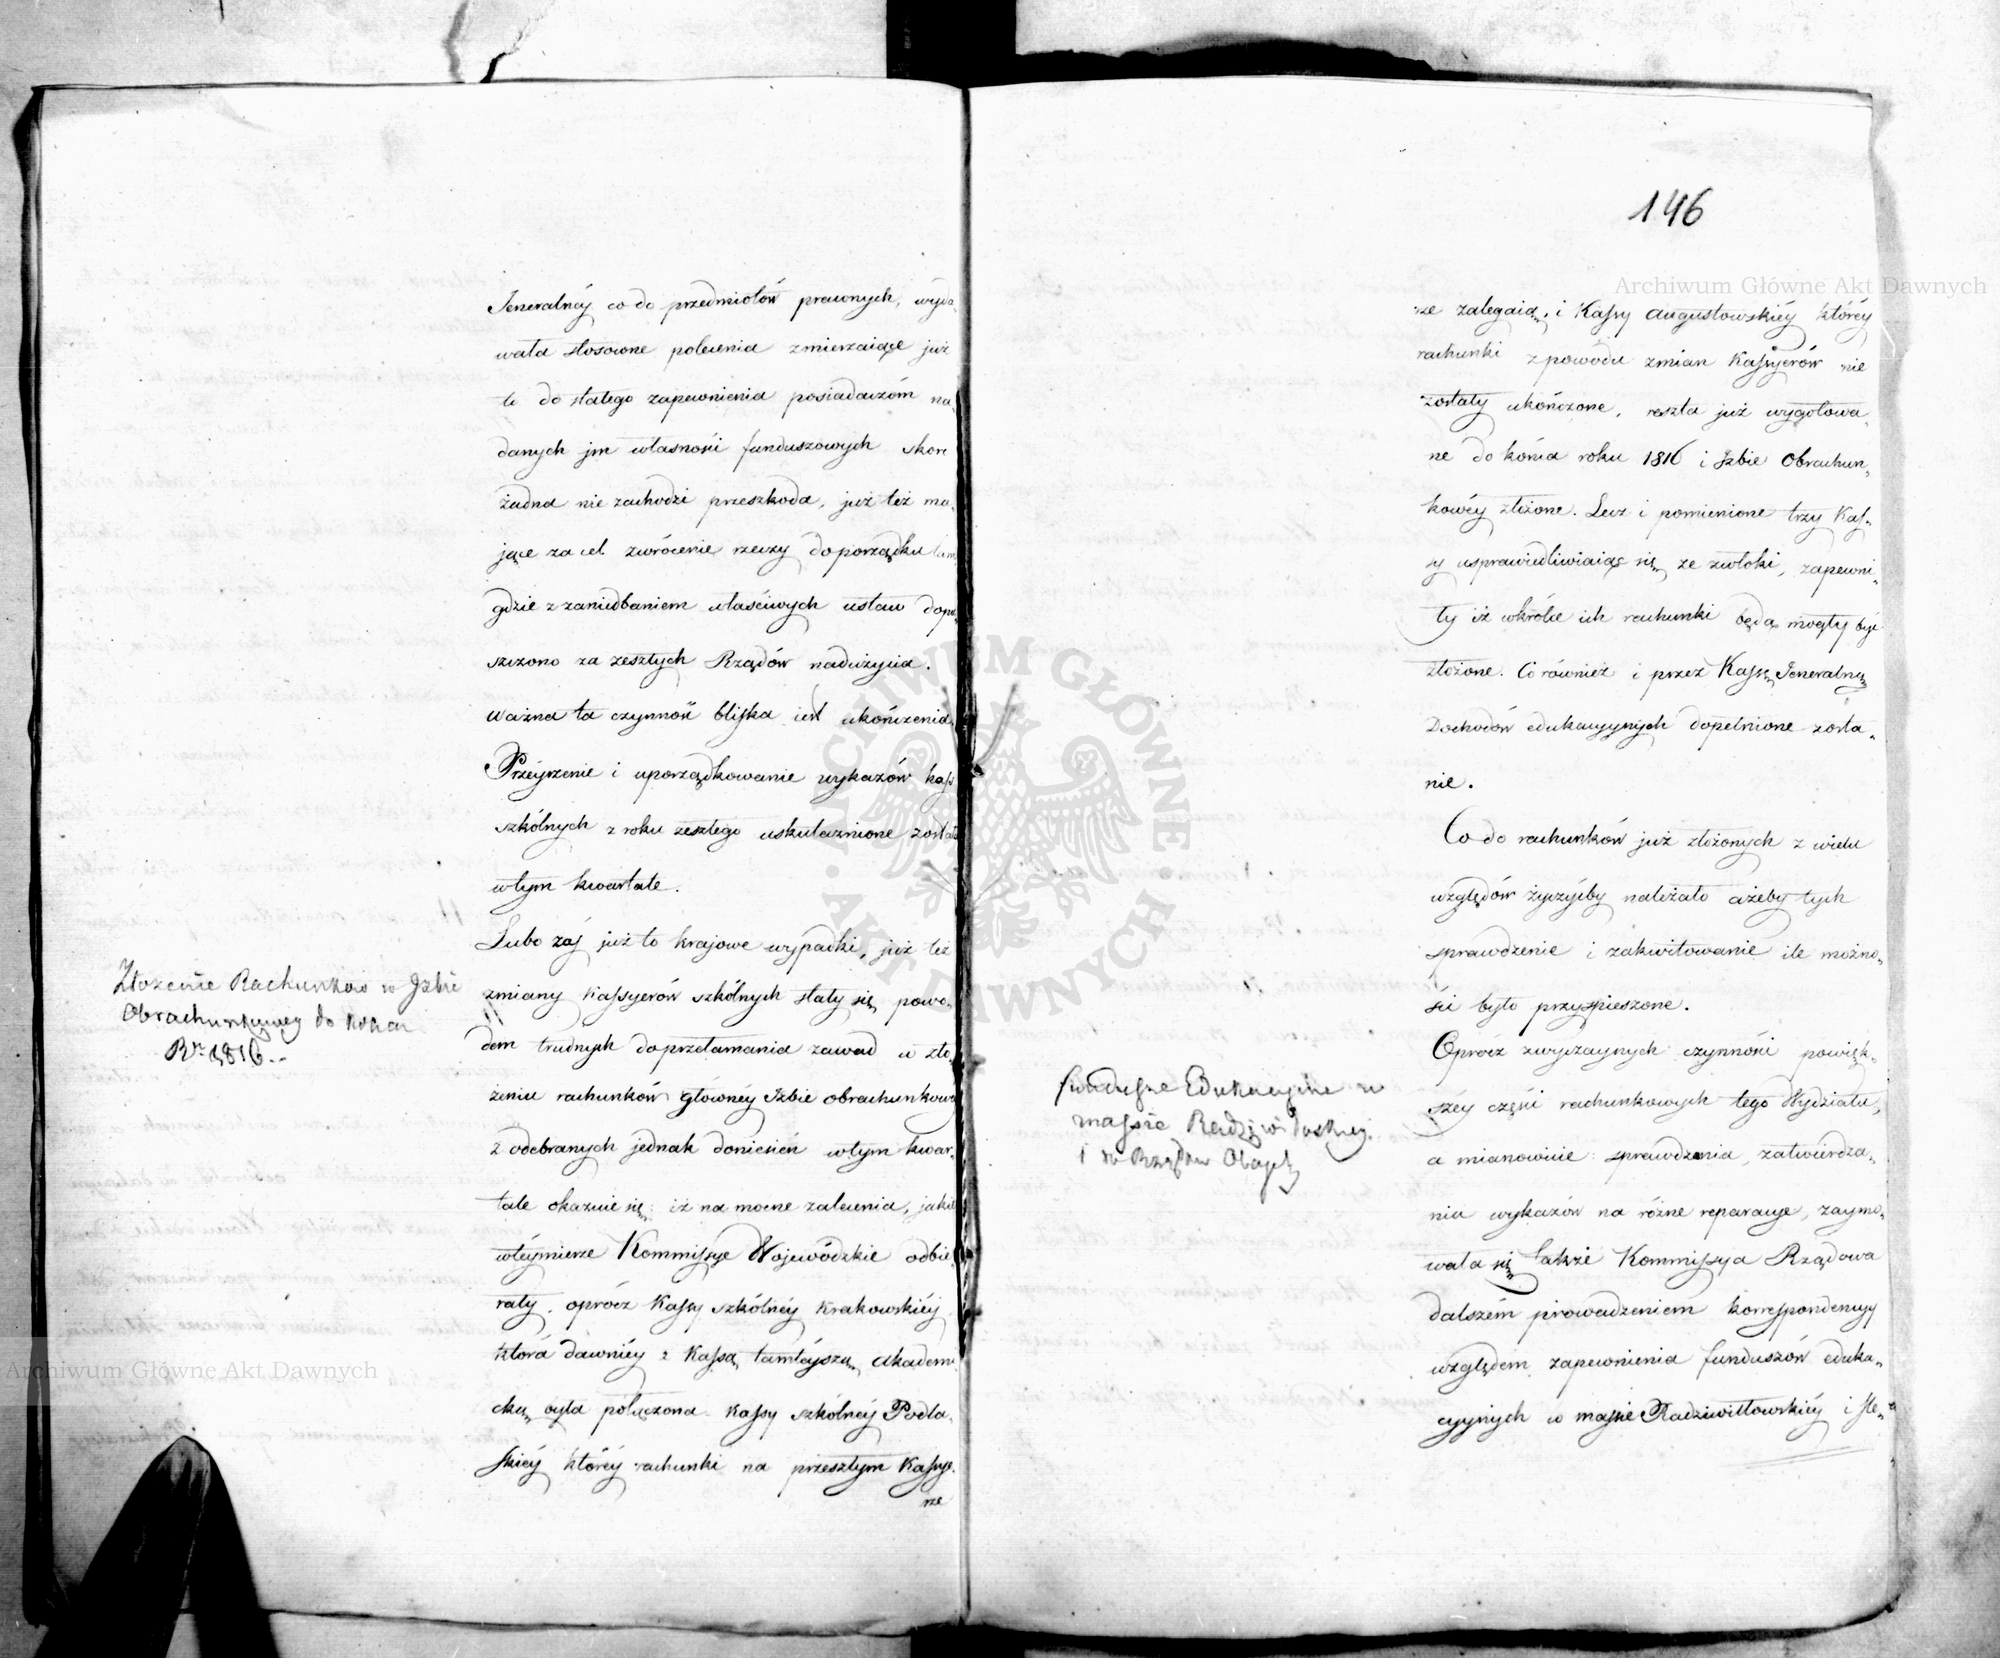 Jeneralnéy co do przedmiotów prawnych, wyda-
wała stosowne polecenia zmierzaiące już
to do stałego zapewnienia posiadaczóm na-
danych jm własności funduszowych skoro
żadna nie zachodzi przeszkoda, już też ma-
jące za cel zwrócenie rzeczy do porządku tam
gdzie z zaniedbaniem właściwych ustaw dopu-
szczono za zeszłych Rządów nadużycia.
Ważna ta czynność bliska iest ukończenia.
Przeyrzenie i uporządkowanie wykazów kass
szkólnych z roku zeszłego uskutecznione zostało
w tym kwartale.
Lubo zaś już to krajowe wypadki, już też
zmiany Kassyerów szkólnych stały się powo-
dem trudnych do przełamania zawad w zło-
żeniu rachunków główney Izbie obrachunkowey
z odebranych jednak doniesień w tym kwar-
tale okazuie się: iż na mocne zalecenia, jakie
w téy mierze Kommissye Wojewódzkie odbie-
rały, oprócz Kassy szkólnéy Krakowskiéy
która dawniéy z Kassą tamtéyszą Akademi-
cką była połączona Kassy szkólnéy Podla-
skiéy któréy rachunki na przeszłym Kassye-
rze
Złożenie Rachunków w Izbie
Obrachunkowey do końca
Ru 1816.
146
rze zalegaią, i Kassy Augustowskiéy któréy
rachunki z powodu zmian Kassyerów nie
zostały ukończone, reszta już wygotowa-
ne do końca roku 1816 i Izbie Obrachun-
kowéy złożone. Lecz i pomienione trzy Kas-
sy usprawiedliwiaiąc się ze zwłoki, zapewni-
ły iż wkrótce ich rachunki będą mogły być
złożone. Co również i przez Kassę Jeneralną
Dochodów edukacyynych dopełnione zosta-
nie.
Co do rachunków już złożonych z wielu
względów życzyćby należało ażeby tych
sprawdzenie i zakwitowanie ile możno-
ści było przyspieszone.
Oprócz zwyczaynych czynności powięk-
széy części rachunkowych tego Wydziału,
a mianowicie: sprawdzenia, zatwierdza-
nia wykazów na różne reparacye, zaymo-
wała się także Kommissya Rządowa
dalszém prowadzeniem korrespondencyy
względem zapewnienia funduszów eduka-
cyynych w massie Radziwiłłowskiéy i ste-
fundusze Edukacyine w
massie Radziwiłłoskiey
i w Rządów Obcych
Archiwum Główne Akt Dawnych
Archiwum Główne Akt Dawnych
ARCHIWUM GŁÓWNE · AKT DAWNYCH ·